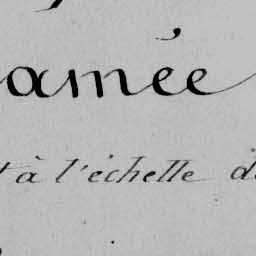 amée
à l'échelle